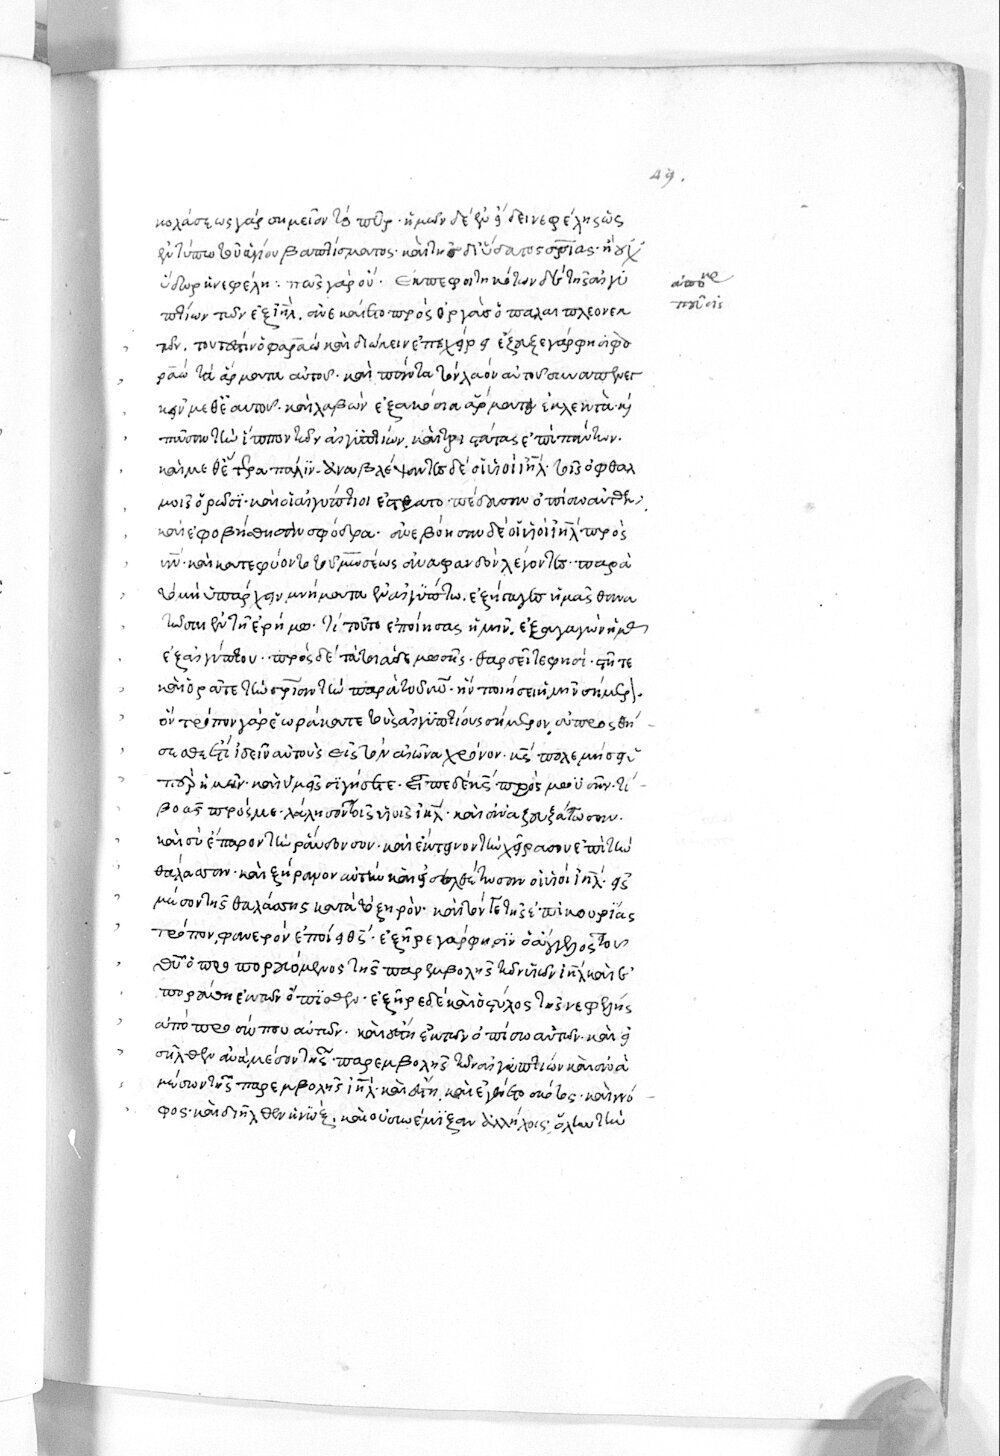 49.
κολάσεως γάρ σημεῖον τὸ πῦρ· ἡμῶν δὲ ἐν εἴδει νεφέλης ὡς
ἐν τύπω τοῦ ἁγίου βαπτίσματος· καὶ τῆς δι' ὕδατος σρίας· ἢ οὐχ
ὕδωρ ἡ νεφέλη· πῶς γὰρ οὔ· Ἐκπεφοιτηκότων δὲ τῆς αἰγυ
πτίων τῶν ἐξ ιηλ. ἀνεκαίετο πρὸς ὀργὰς ὁ πάλαι πλεονεκ
τῶν. τουτέστιν ὁ φαραὼ καὶ διώκειν ἐπεχείρει ἔζευξε γάρ φησι φα
ραὼ τὰ ἅρματα αὐτοῦ· καὶ πάντα τὸν λαὸν αὐτοῦ συναπήγεγ
κεν μεθ' ἑαυτοῦ· καὶ λαβὼν ἑξακόσια ἅρματα ἐκλεκτὰ· καὶ
πᾶσαν τὴν ἵππον τῶν αἰγυπτίων. καὶ τριστάτας ἐπὶ πάντων.
καὶ μεθ' ἕτερα πάλιν· ἀναβλέψαντες δὲ οἱ υἱοὶ ιηλ· τοῖς ὀφθαλ
μοῖς ὁρῶσι· καὶ οἱ αἰγύπτιοι ἐστρατοπέδευσαν ὀπίσω αὐτῶν,
καὶ ἐφοβήθησαν σφόδρα· ἀνεβόησαν δὲ οἱ υἱοὶ ιηλ πρὸς
κν· καὶ κατεφύοντο τοῦ μωσέως ἀναφανδὸν λέγοντες· παρὰ
τὸ μὴ ὑπάρχειν μνήματα ἐν αἰγύπτω. ἐξήγαγες ἡμᾶς θανα
τῶσαι ἐν τῆ ἐρήμω. τί τοῦτο ἐποίησας ἡμῖν. ἐξαγαγὼν ἡμᾶς
ἐξ αἰγύπτου· πρὸς δὲ τὰ τοιάδε μωσῆς· θαρσεῖτε φησί· στῆτε
καὶ ὁρᾶτε τὴν σρίαν τὴν παρὰ τοῦ θυ· ἣν ποιήσει ἡμῖν σήμερον.
ὃν τρόπον γὰρ ἑωράκατε τοὺς αἰγυπτίους σήμερον, οὐ προσθή
σεσθε ἔτι ἰδεῖν αὐτοὺς εἰς τὸν αἰῶνα χρόνον. κς πολεμήσει
περὶ ἡμῶν· καὶ ὑμεῖς σιγήσετε· Εἶπε δὲ κς πρὸς μωυσῆν. τί
βοᾶς πρός με· λάλησον τοῖς υἱοῖς ιηλ· καὶ ἀναζευξάτωσαν.
καὶ σὺ ἔπαρον τὴν ράβδον σου· καὶ ἔκτεινον τὴν χεῖρα σου ἐπὶ τὴν
θάλασσαν· καὶ ξήρανον αὐτὴν καὶ εἰσελθέτωσαν οἱ υἱοὶ ιηλ· εἰς
μέσον τῆς θαλάσσης κατὰ τὸ ξηρὸν· καὶ τόν γε τῆς ἐπικουρίας
τρόπον, φανερὸν ἐποίει θς· ἐξῆρε γάρ φησιν ὁ ἄγγελος τοῦ
θυ ὁ προπορευόμενος τῆς παρεμβολῆς τῶν υἱῶν ιηλ καὶ ἐ
πορεύθη ἐκ τῶν ὄπισθεν· ἐξῆρε δὲ καὶ ὁ στύλος τῆς νεφέλης
ἀπὸ προσώπου αὐτῶν· καὶ ἔστη ἐκ τῶν ὀπίσω αὐτῶν· καὶ εἰ
σῆλθεν ἀνάμεσον τῆς παρεμβολῆς τῶν αἰγυπτίων καὶ ἀνὰ
μέσον τῆς παρεμβολῆς ιηλ· καὶ ἔστη. καὶ ἐγένετο σκότος· καὶ γνό
φος· καὶ διῆλθεν ἡ νὺξ, καὶ οὐ συνέμιξαν ἀλλήλοις· ὅλην τὴν